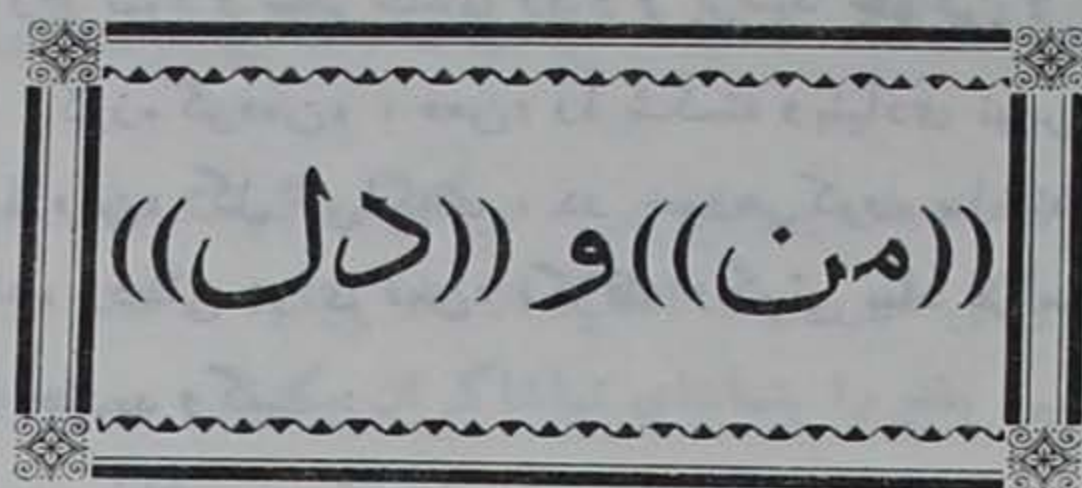 ((من)) و ((دل))